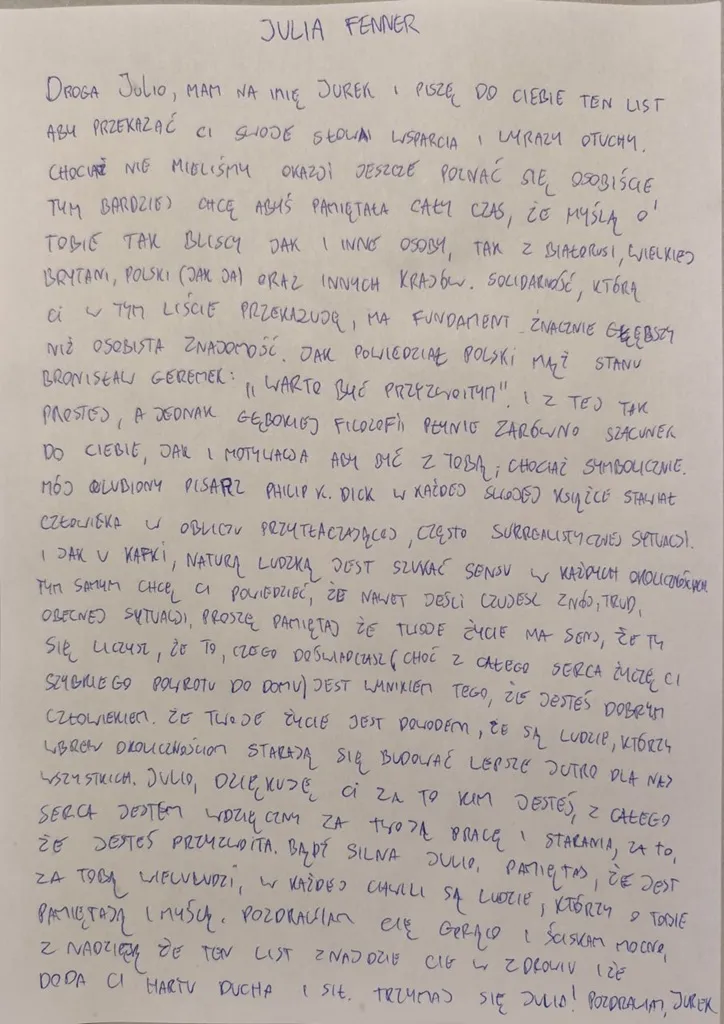 JULIA FENNER
DROGA JULIO, MAM NA IMIĘ JUREK I PISZĘ DO CIEBIE TEN LIST
ABY PRZEKAZAĆ CI SWOJE SŁOWA WSPARCIA I WYRAZY OTUCHY.
CHOCIAŻ NIE MIELIŚMY OKAZJI JESZCZE POZNAĆ SIĘ OSOBIŚCIE
TYM BARDZIEJ CHCĘ ABYŚ PAMIĘTAŁA CAŁY CZAS, ŻE MYŚLĄ O
TOBIE TAK BLISCY JAK I INNE OSOBY, TAK Z BIAŁORUSI, WIELKIEJ
BRYTANI, POLSKI (JAK JA) ORAZ INNYCH KRAJÓW. SOLIDARNOŚĆ, KTÓRĄ
CI W TYM LIŚCIE PRZEKAZUJĘ, MA FUNDAMENT ZNACZNIE GŁĘBSZY
NIŻ OSOBISTA ZNAJOMOŚĆ. JAK POWIEDZIAŁ POLSKI MĄŻ STANU
BRONISŁAW GEREMEK: "WARTO BYĆ PRZYZWOITYM". I Z TEJ TAK
PROSTEJ, A JEDNAK GŁĘBOKIEJ FILOZOFII PŁYNIE ZARÓWNO SZACUNEK
DO CIEBIE, JAK I MOTYWACJA ABY BYĆ Z TOBĄ, CHOCIAŻ SYMBOLICZNIE.
MÓJ ULUBIONY PISARZ PHILIP K. DICK W KAŻDEJ SWOJEJ KSIĄŻCE STAWIAŁ
CZŁOWIEKA W OBLICZU PRZYTŁACZAJĄCEJ, CZĘSTO SURREALISTYCZNEJ SYTUACJI.
I JAK U KAFKI, NATURĄ LUDZKĄ JEST SZUKAĆ SENSU W KAŻDYCH OKOLICZNOŚCIACH
TYM SAMYM CHCĘ CI POWIEDZIEĆ, ŻE NAWET JEŚLI CZUJESZ ZNÓJ, TRUD,
OBECNEJ SYTUACJI, PROSZĘ PAMIĘTAJ ŻE TWOJE ŻYCIE MA SENS, ŻE TY
SIĘ LICZYSZ, ŻE TO, CZEGO DOŚWIADCZASZ (CHOĆ Z CAŁEGO SERCA ŻYCZĘ CI
SZYBKIEGO POWROTU DO DOMU) JEST WYNIKIEM TEGO, ŻE JESTEŚ DOBRYM
CZŁOWIEKIEM. ŻE TWOJE ŻYCIE JEST DOWODEM, ŻE SĄ LUDZIE, KTÓRZY
WBREW OKOLICZNOŚCIOM STARAJĄ SIĘ BUDOWAĆ LEPSZE JUTRO DLA NAS
WSZYSTKICH. JULIO, DZIĘKUJĘ CI ZA TO KIM JESTEŚ, Z CAŁEGO
SERCA JESTEM WDZIĘCZNY ZA TWOJĄ PRACĘ I STARANIA, ZA TO,
ŻE JESTEŚ PRZYZWOITA. BĄDŹ SILNA JULIO, PAMIĘTAJ, ŻE JEST
ZA TOBĄ WIELU LUDZI, W KAŻDEJ CHWILI SĄ LUDZIE, KTÓRZY O TOBIE
PAMIĘTAJĄ I MYŚLĄ. POZDRAWIAM CIĘ GORĄCO I ŚCISKAM MOCNO,
Z NADZIEJĄ ŻE TEN LIST ZNAJDZIE CIE W ZDROWIU I ŻE
DODA CI HARTU DUCHA I SIŁ. TRZYMAJ SIĘ JULIA! POZDRAWIAM, JUREK